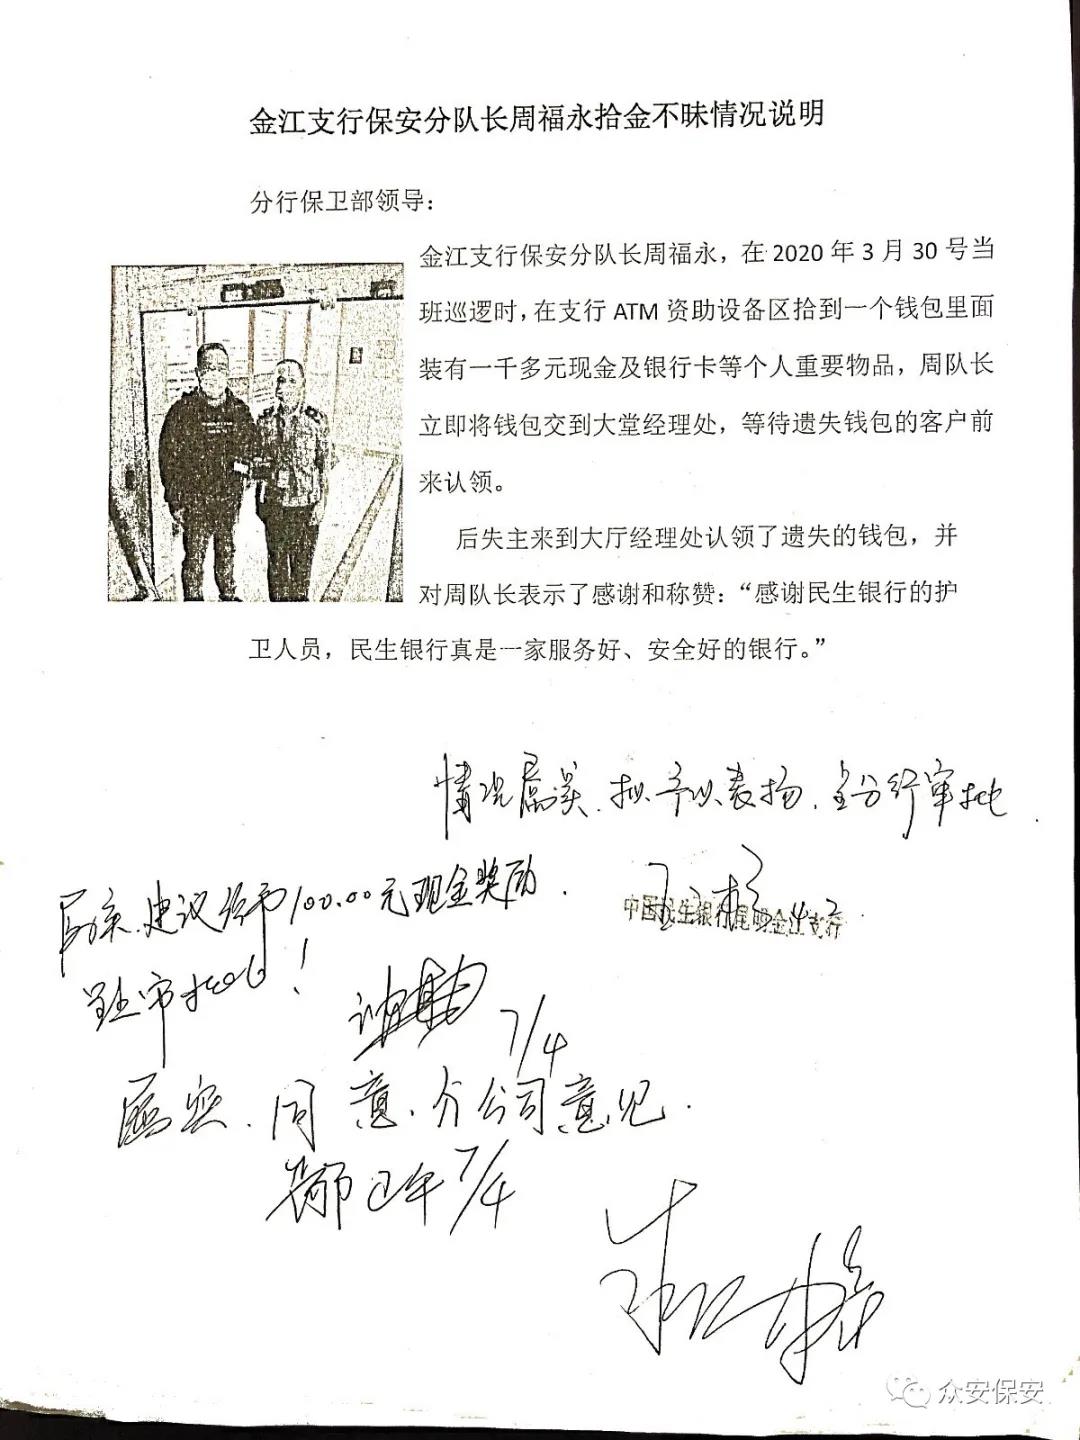 金江支行保安分队长周福永拾金不昧情况说明
分行保卫部领导：
金江支行保安分队长周福永，在 2020 年 3 月 30 号当
班巡逻时，在支行 ATM 资助设备区拾到一个钱包里面
装有一千多元现金及银行卡等个人重要物品，周队长
立即将钱包交到大堂经理处，等待遗失钱包的客户前
来认领。
后失主来到大厅经理处认领了遗失的钱包，并
对周队长表示了感谢和称赞：“感谢民生银行的护
卫人员，民生银行真是一家服务好、安全好的银行。”
情况属实，拟予以表扬，呈分行审批
中国民生银行昆明金江支行
属实，建议给予100.00元现金奖励．
呈审批！
7/4
属实．同意．分公司意见．
7/4
众安保安